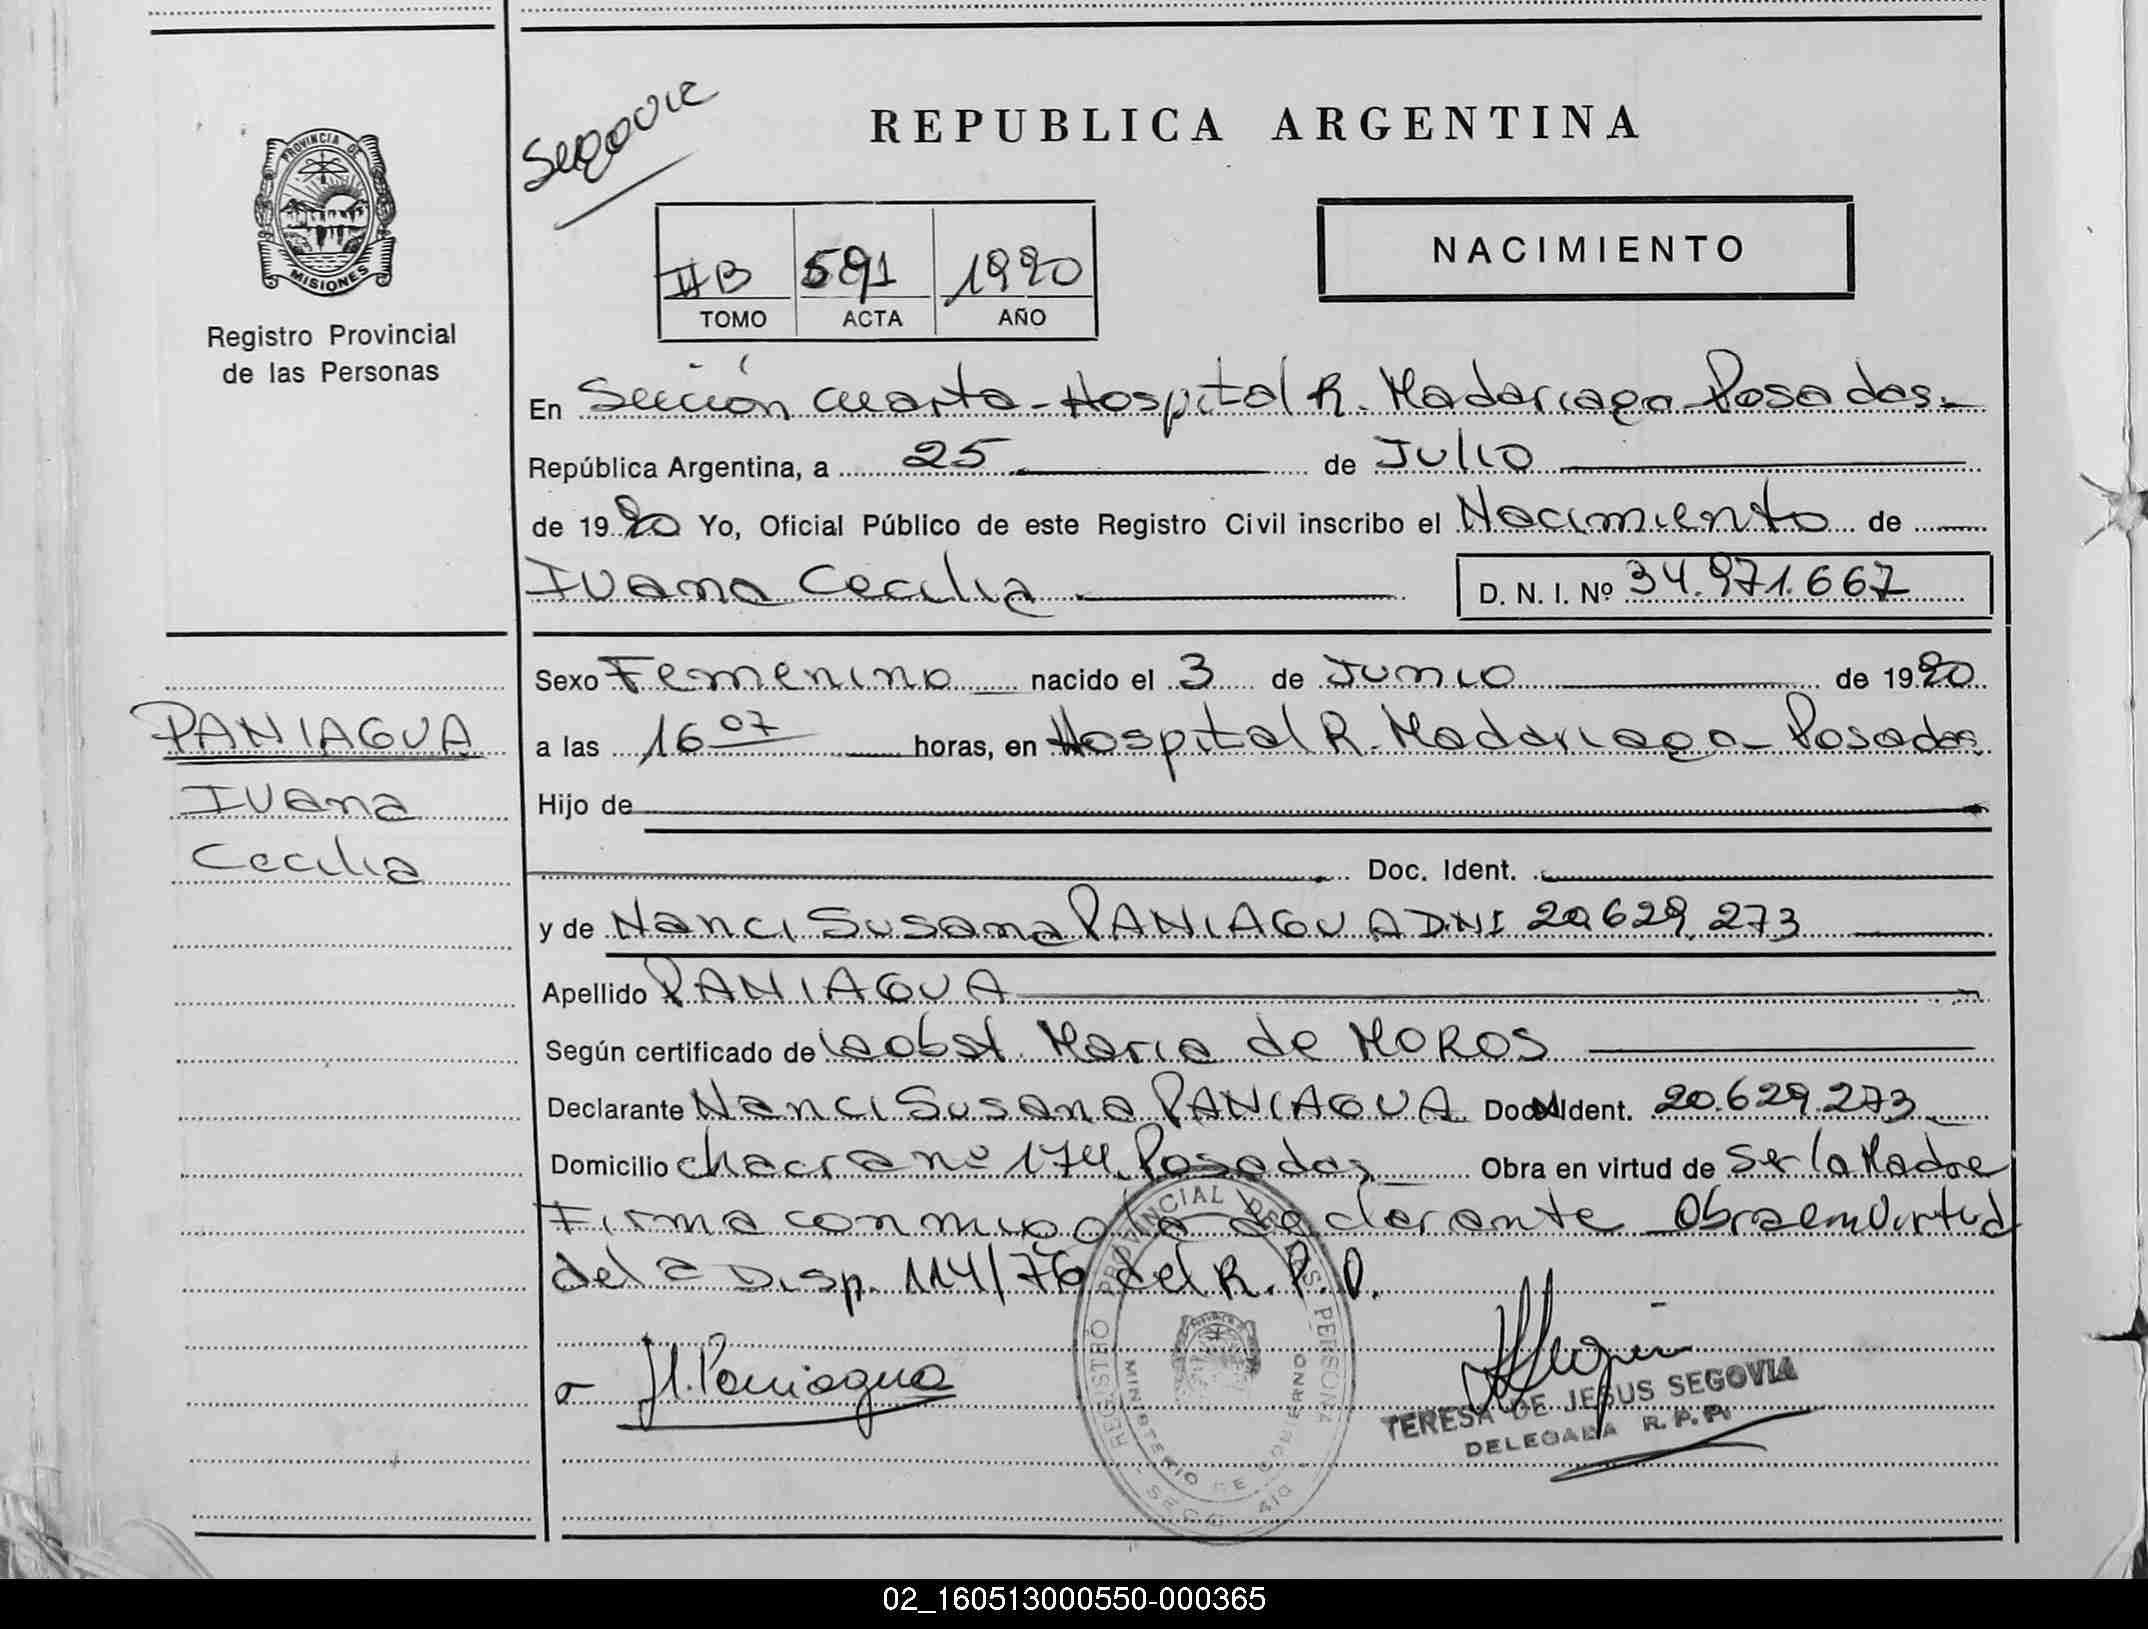 Segovia
REPUBLICA ARGENTINA
PROVINCIA DE
MISIONES
NACIMIENTO
IIB 591 1990
TOMO ACTA AÑO
Registro Provincial
de las Personas
En Sección cuarta - Hospital R. Madariaga - Posadas -
República Argentina, a 25 de Julio
de 1990 Yo, Oficial Público de este Registro Civil inscribo el Nacimiento de
Ivana Cecilia D. N. I. Nº 34.971.667
Sexo Femenino nacido el 3 de Junio de 1990
PANIAGUA
a las 16 07 horas, en Hospital R. Madariaga - Posadas
Ivana
Hijo de
Cecilia
Doc. Ident.
y de Nanci Susana PANIAGUA DNI 20.629.273
Apellido PANIAGUA
Según certificado de la obst. Maria de MOROS
Declarante Nanci Susana PANIAGUA Doc Ident. 20.629.273
Domicilio chacra nº 174 Posadas Obra en virtud de Ser la Madre
Firma conmigo la declarante Obra en virtud
de la Disp. 114/76 del R. P. P.
N. Paniagua
REGISTRO PROVINCIAL DE LAS PERSONAS
MINISTERIO DE GOBIERNO
TERESA DE JESUS SEGOVIA
DELEGADA R. P. P.
02_160513000550-000365